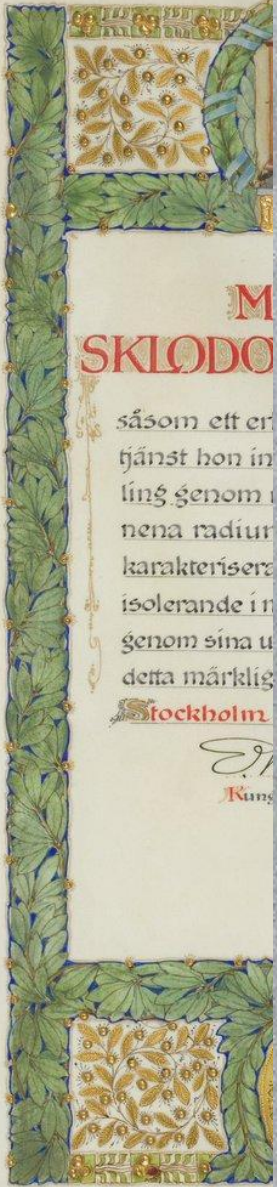 M
SKLODO
såsom ett er
tjänst hon in
ling genom
nena radiur
karakterisera
isolerande i n
genom sina u
detta märklig
Stockholm
Kung